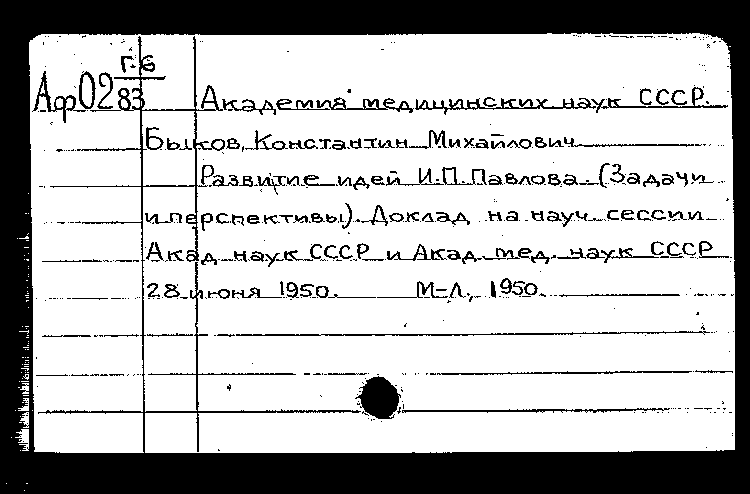 Г-6
Аф02 83 Академия медицинских наук СССР.
Быков, Константин Михайлович
Развитие идей И.П.Павлова. (Задачи
и перспективы). Доклад на науч. сессии
Акад. наук СССР и Акад. мед. наук СССР
28 июня 1950. М-Л., 1950.